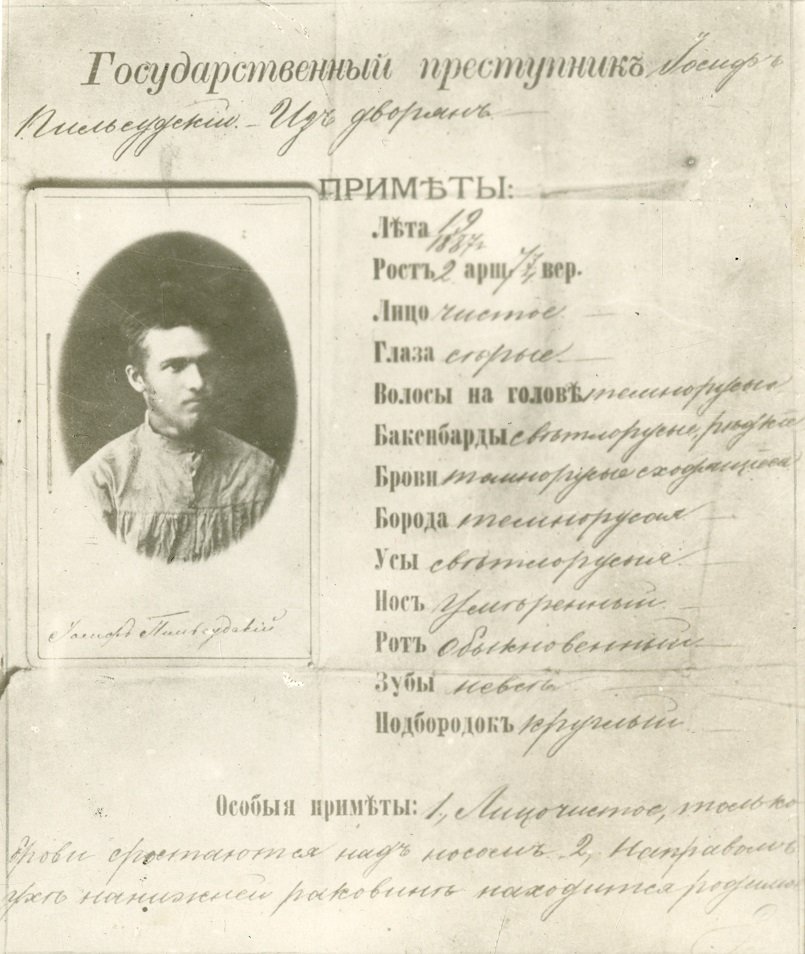 Государственный преступникъ Iосифъ
Пильсудскiй. - Изъ дворянъ
ПРИМѢТЫ:
Лѣта 19
1887г
Ростъ 2 арш. вер.
Лицо чистое
Глаза сѣрые
Волосы на головѣ темнорусые
Бакенбарды свѣтлорусые, рѣдкiе
Брови темнорусые сходящiеся
Борода темнорусая
Усы свѣтлорусыя
Носъ умѣренный
Ротъ обыкновенный
Зубы не всѣ
Подбородокъ круглый
Iосифъ Пильсудскiй
Особыя примѣты: 1, Лицо чистое, только
брови сростаются надъ носомъ. 2, На правомъ
ухѣ на нижней раковинѣ находится родимо